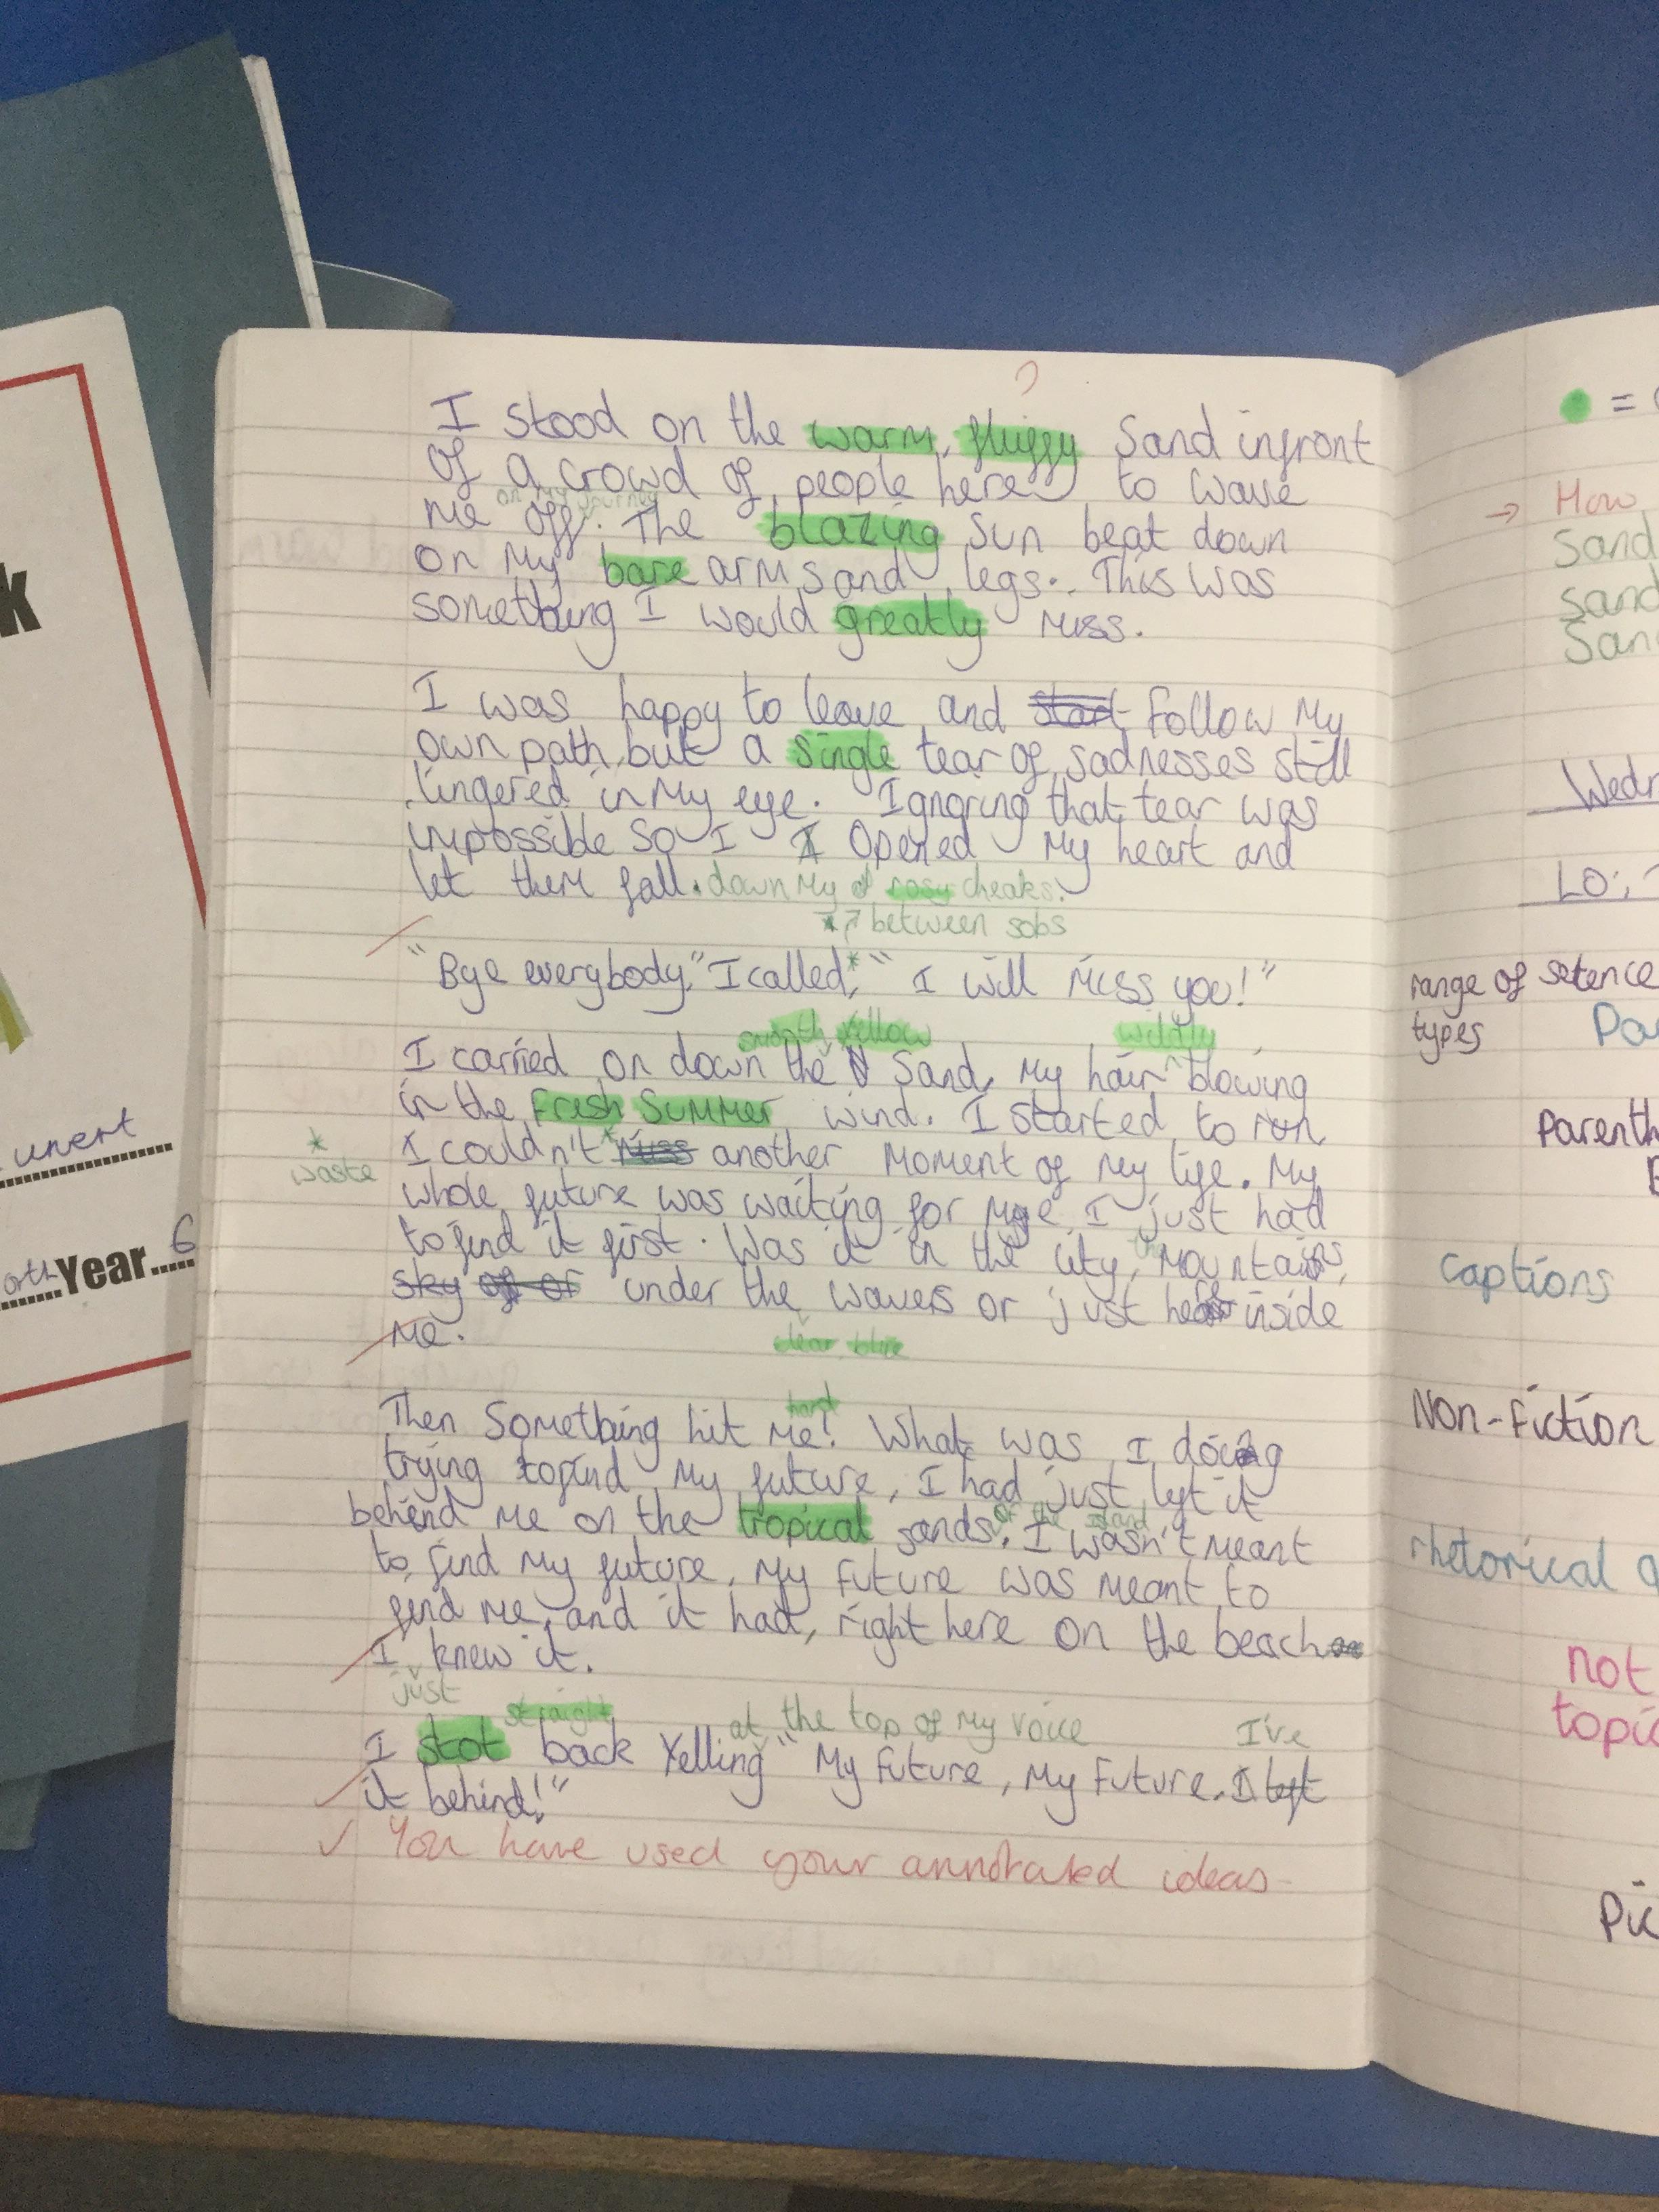 k
unert
orth Year 6
?
I stood on the warm, fluffy Sand infront
of a crowd of people here to wave
on my journey
me off. The blazing Sun beat down
on my bare arms and legs. This was
something I would greatly miss.
I was happy to leave and start follow my
own path but a single tear of sadnesses still
lingered in my eye. Ignoring that tear was
impossible so I I opened my heart and
let them fall. down my rosy cheaks.
* between sobs
"Bye everybody," I called,* " I will miss you!"
smooth yellow wildly
I carried on down the Sand, my hair blowing
in the fresh summer wind. I started to run
* waste
I couldn't * miss another moment of my life. My
whole future was waiting for me I just had
to find it first. Was it in the city, the mountains,
sky or under the waves or just here inside
clear blue
me.
hard
Then something hit me! What was I doing
trying to find my future, I had just left it
behind me on the tropical sands of the island. I wasn't meant
to find my future, my future was meant to
find me, and it had, right here on the beach
I knew it.
just
straight at the top of my voice I've
I stot back Yelling " My future, my future. I left
it behind!"
✓ You have used your annotated ideas
=
→ How
Sand
Sand
San
Wedn
LO:
range of setence
types
Pa
Parenth
captions
Non-fiction
rhetorical q
not
topic
Pic